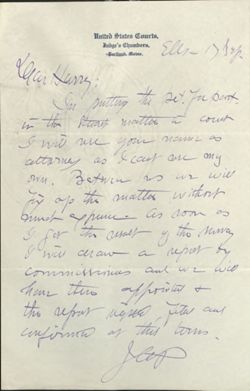 United States Courts,
Judge's Chambers,
Portland, Maine.
Dear Harry:
In putting the
in the matter in court
I will use your name as
attorney as I can't use my
own. Between us we will
fix up the matter without
much expense. As soon as
I get the result of the survey
I will draw a report by
commissioners and we will
have them appointed &
the report signed, filed and
confirmed at this term.